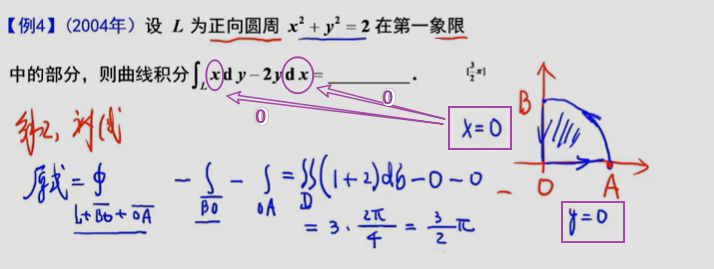 【例4】(2004年) 设 L 为正向圆周 x² + y² = 2 在第一象限
中的部分，则曲线积分∫_L xdy − 2ydx = ________. [3/2 π]
0
0
x=0
B
O
A
y=0
原式 = ∮_{L+BO+OA} − ∫_{BO} − ∫_{OA} = ∬_D (1+2)dσ − 0 − 0
= 3 · 2π/4 = 3/2 π